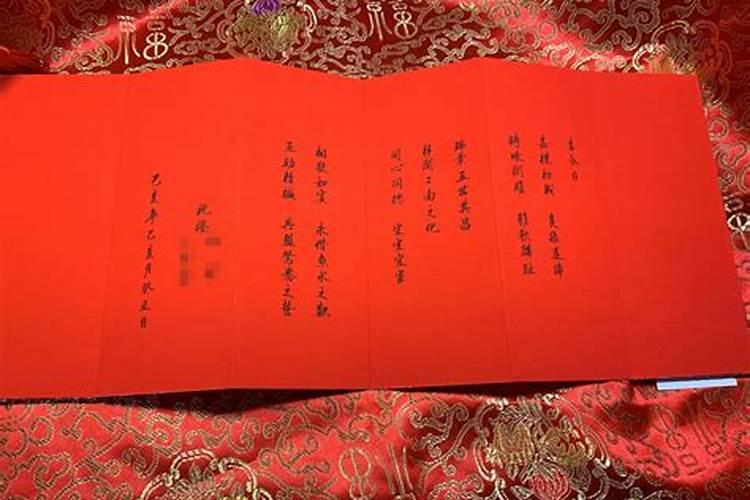 喜今日
嘉禮初成 良緣遂締
詩詠關雎 雅歌麟趾
瑞葉五世其昌
祥開二南之化
同心同德 宜室宜家
相敬如賓 永偕魚水之歡
互助精誠 共盟鴛鴦之誓
此證
己亥年乙亥月癸丑日